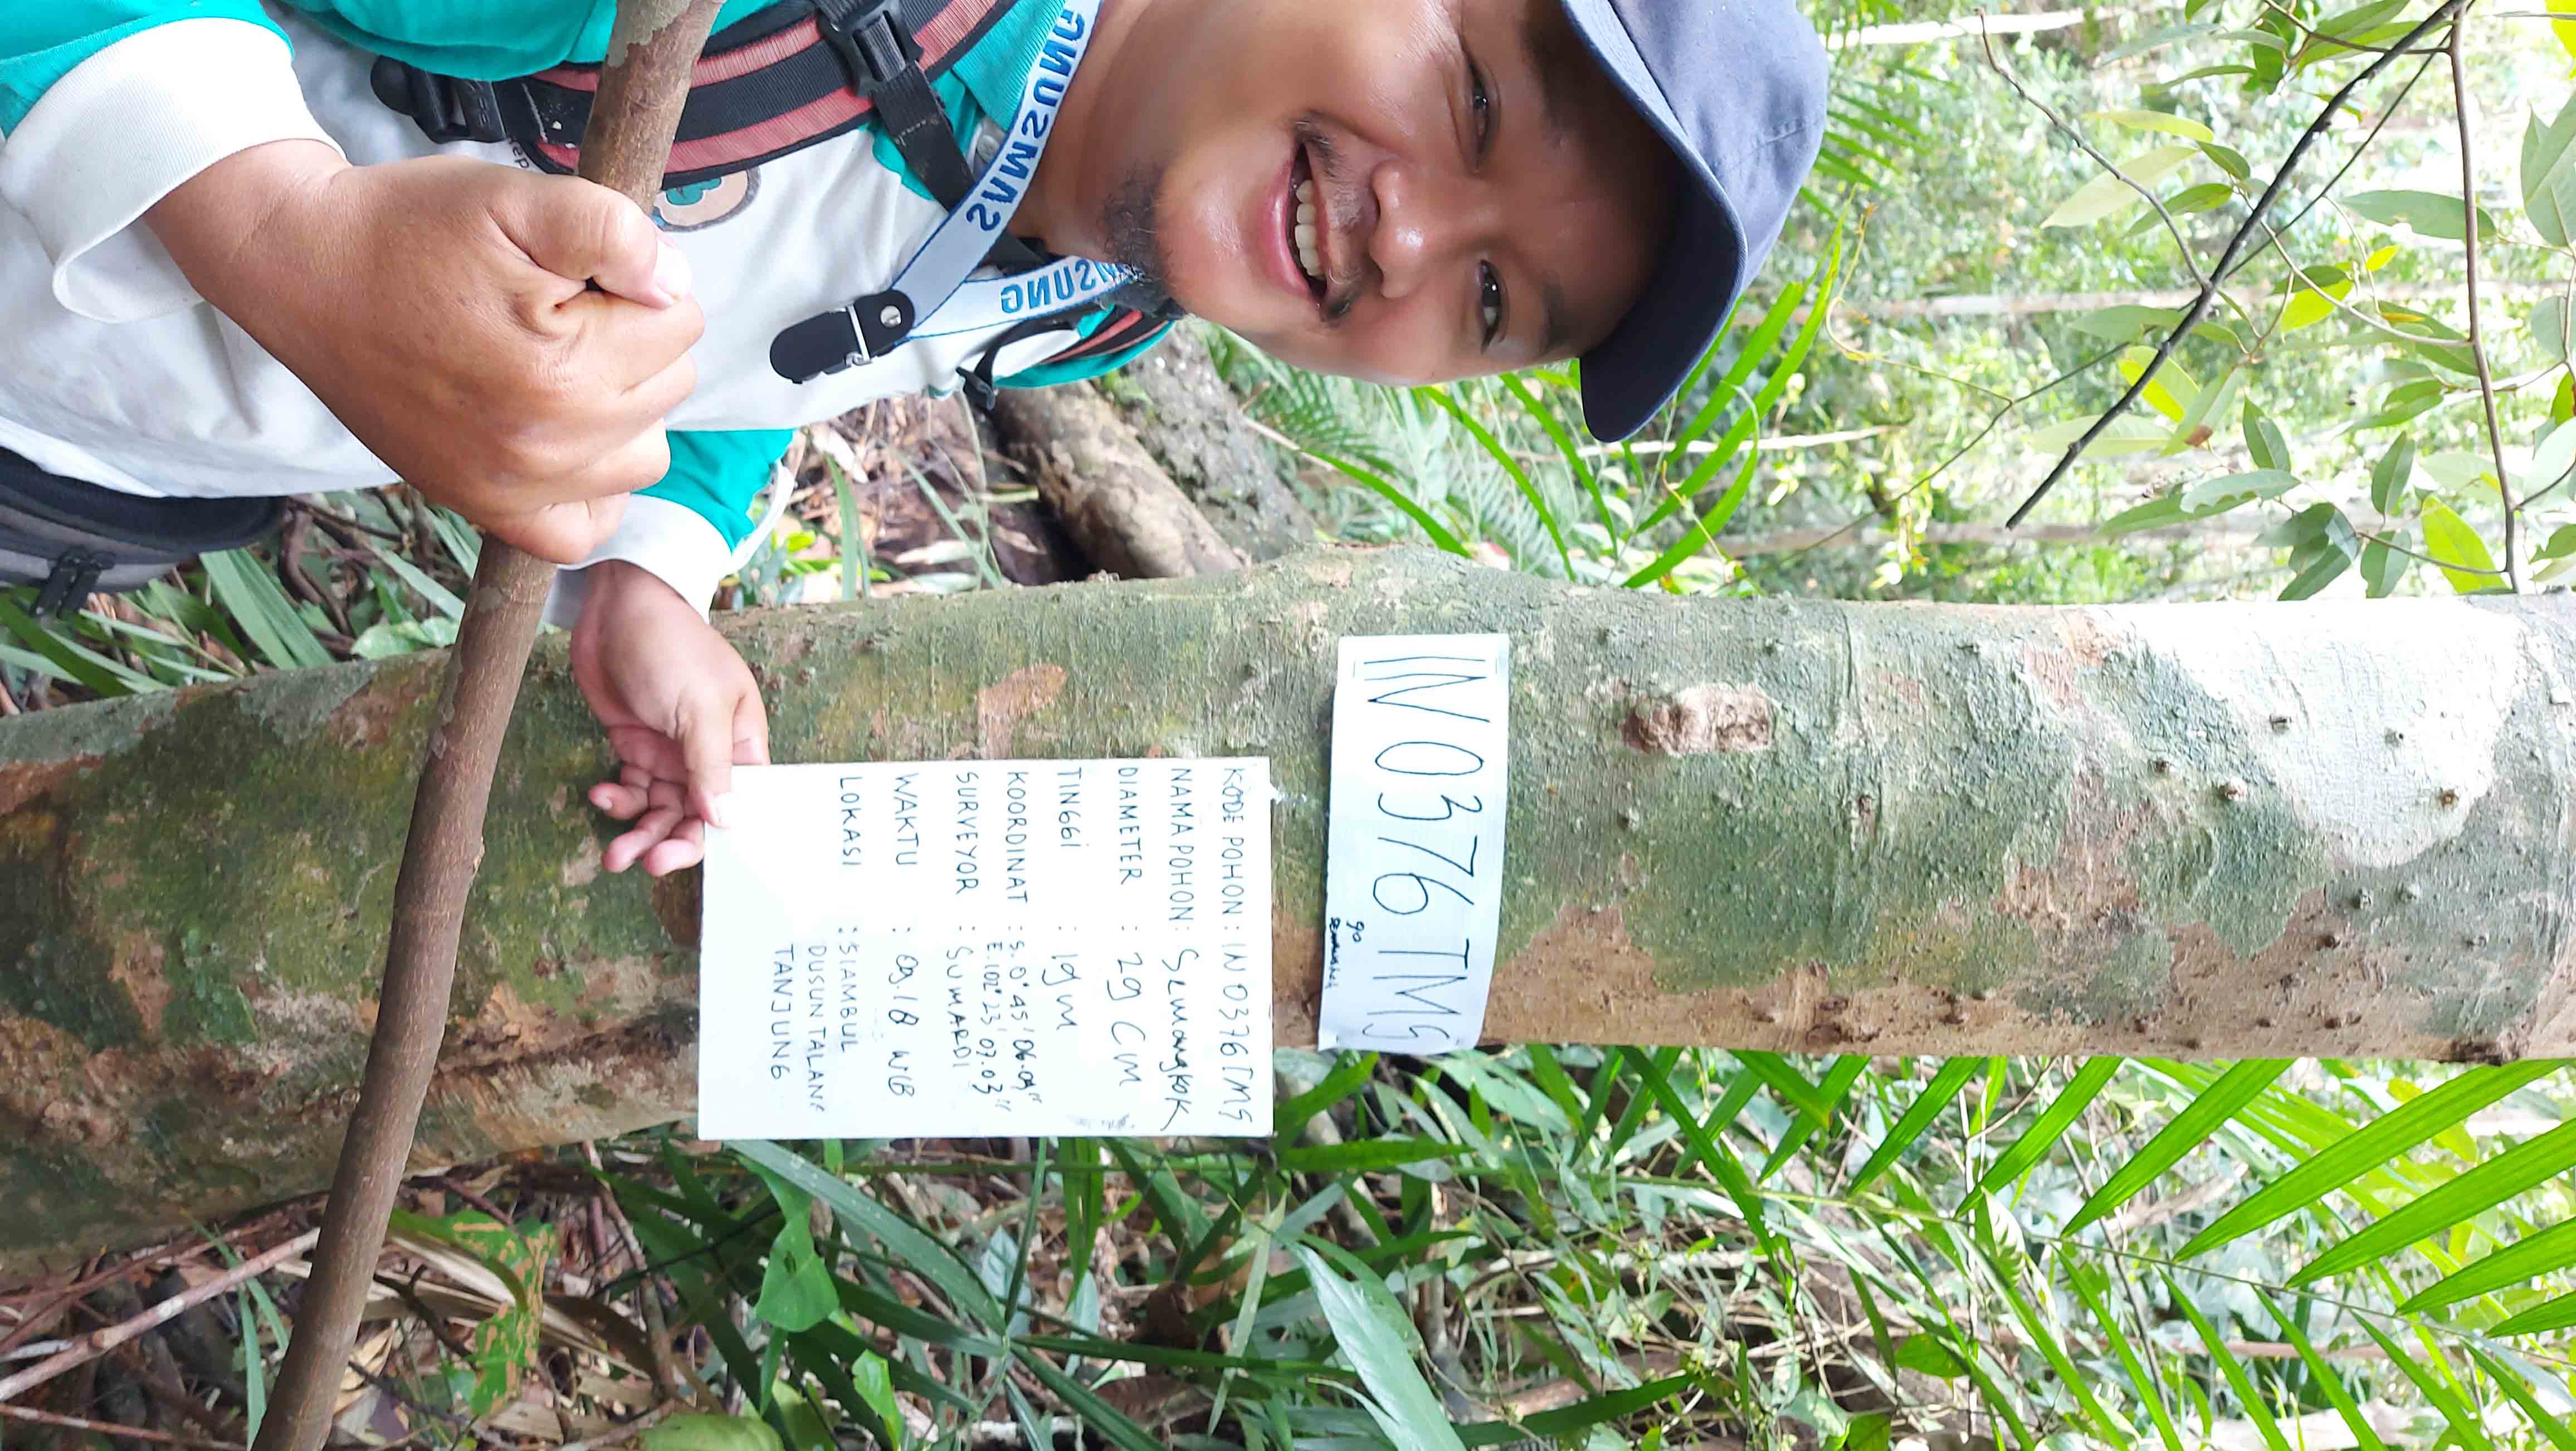 SAMSUNG
IN0376TMS
go
KODE POHON : IN0376TMS
NAMA POHON : Semangkok
DIAMETER : 29 CM
TINGGI : 19 M
KOORDINAT : S. 0° 45' 06.09"
E. 102° 23' 07.03"
SURVEYOR : SUMARDI
WAKTU : 09.18 WIB
LOKASI : SIAMBUL
DUSUN TALANG
TANJUNG